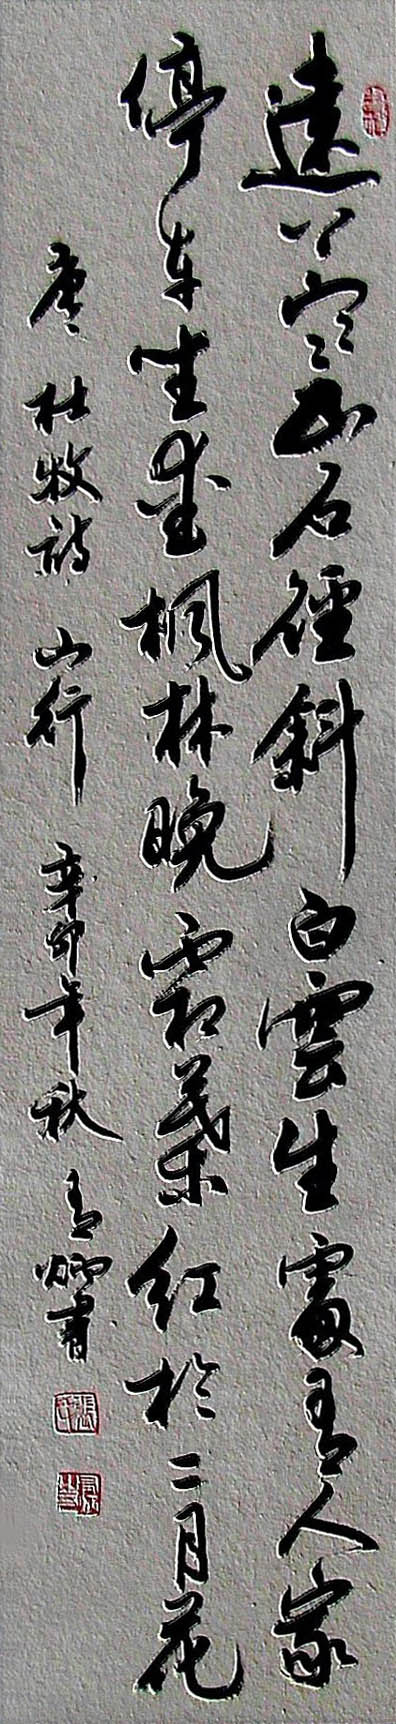 遠上寒山石徑斜白雲生處有人家
停車坐愛楓林晚霜葉紅於二月花
唐杜牧詩山行辛卯年秋有炳書